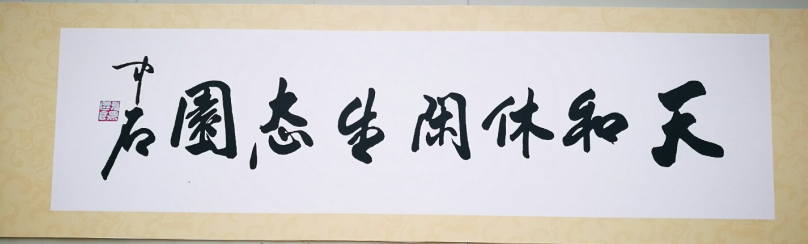 天和休闲生态園
中石